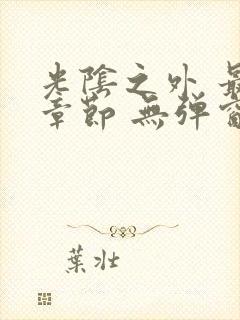 光陰之外 最
章節 無弹窗
葉壮